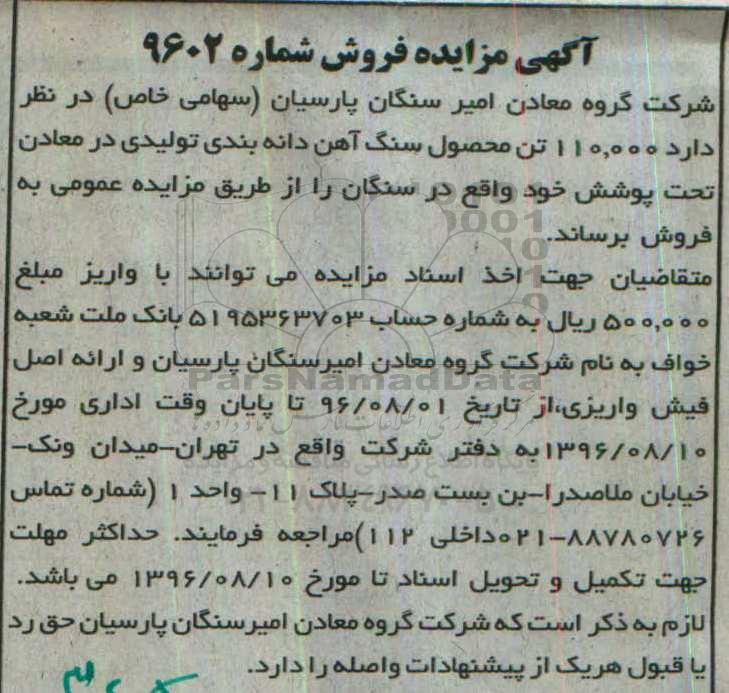 آگهی مزایده فروش شماره ۹۶۰۲
شرکت گروه معادن امیر سنگان پارسیان (سهامی خاص) در نظر
دارد ۱۱۰,۰۰۰ تن محصول سنگ آهن دانه بندی تولیدی در معادن
تحت پوشش خود واقع در سنگان را از طریق مزایده عمومی به
فروش برساند.
متقاضیان جهت اخذ اسناد مزایده می توانند با واریز مبلغ
۵۰۰,۰۰۰ ریال به شماره حساب ۵۱۹۵۳۶۳۷۰۳ بانک ملت شعبه
خواف به نام شرکت گروه معادن امیرسنگان پارسیان و ارائه اصل
فیش واریزی،از تاریخ ۹۶/۰۸/۰۱ تا پایان وقت اداری مورخ
۱۳۹۶/۰۸/۱۰به دفتر شرکت واقع در تهران-میدان ونک-
خیابان ملاصدرا-بن بست صدر-پلاک ۱۱- واحد ۱ (شماره تماس
۰۲۱-۸۸۷۸۰۷۲۶داخلی ۱۱۲)مراجعه فرمایند. حداکثر مهلت
جهت تکمیل و تحویل اسناد تا مورخ ۱۳۹۶/۰۸/۱۰ می باشد.
لازم به ذکر است که شرکت گروه معادن امیرسنگان پارسیان حق رد
یا قبول هریک از پیشنهادات واصله را دارد.
ParsNamadData